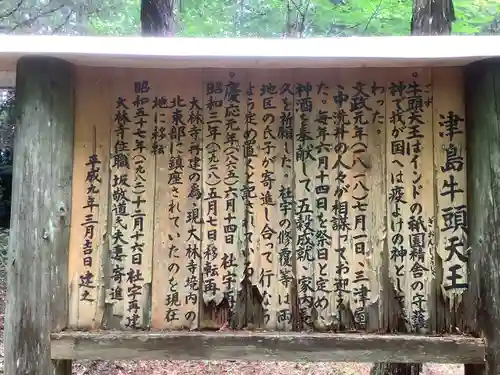 津島牛頭天王
。牛頭天王はインドの祇園精舎の守
ごず
ぎおん
神で我が国へは疫よけの神として
わった。
文政元年(一八一八)七月一日、三津屋
中洗井の人々が相謀ってお迎え
た。毎年六月十四日を祭日と定め
神酒を奉献して、五穀成就、家内
久を祈願した。社宇の修復等は両
地区の氏子が寄進し合って行な
よう定め置くと記されている。
。慶応元年(一八六五)六月十四日社宇再
昭和三年(一九二八)五月七日移転再
大林寺再建の為、現大林寺境内の
北東部に鎮座されていたのを現在
地に移転
昭和五十七年(一九八二)十二月十六日社宇再建
大林寺住職坂敬道氏夫妻寄進
平成九年三月吉日建之